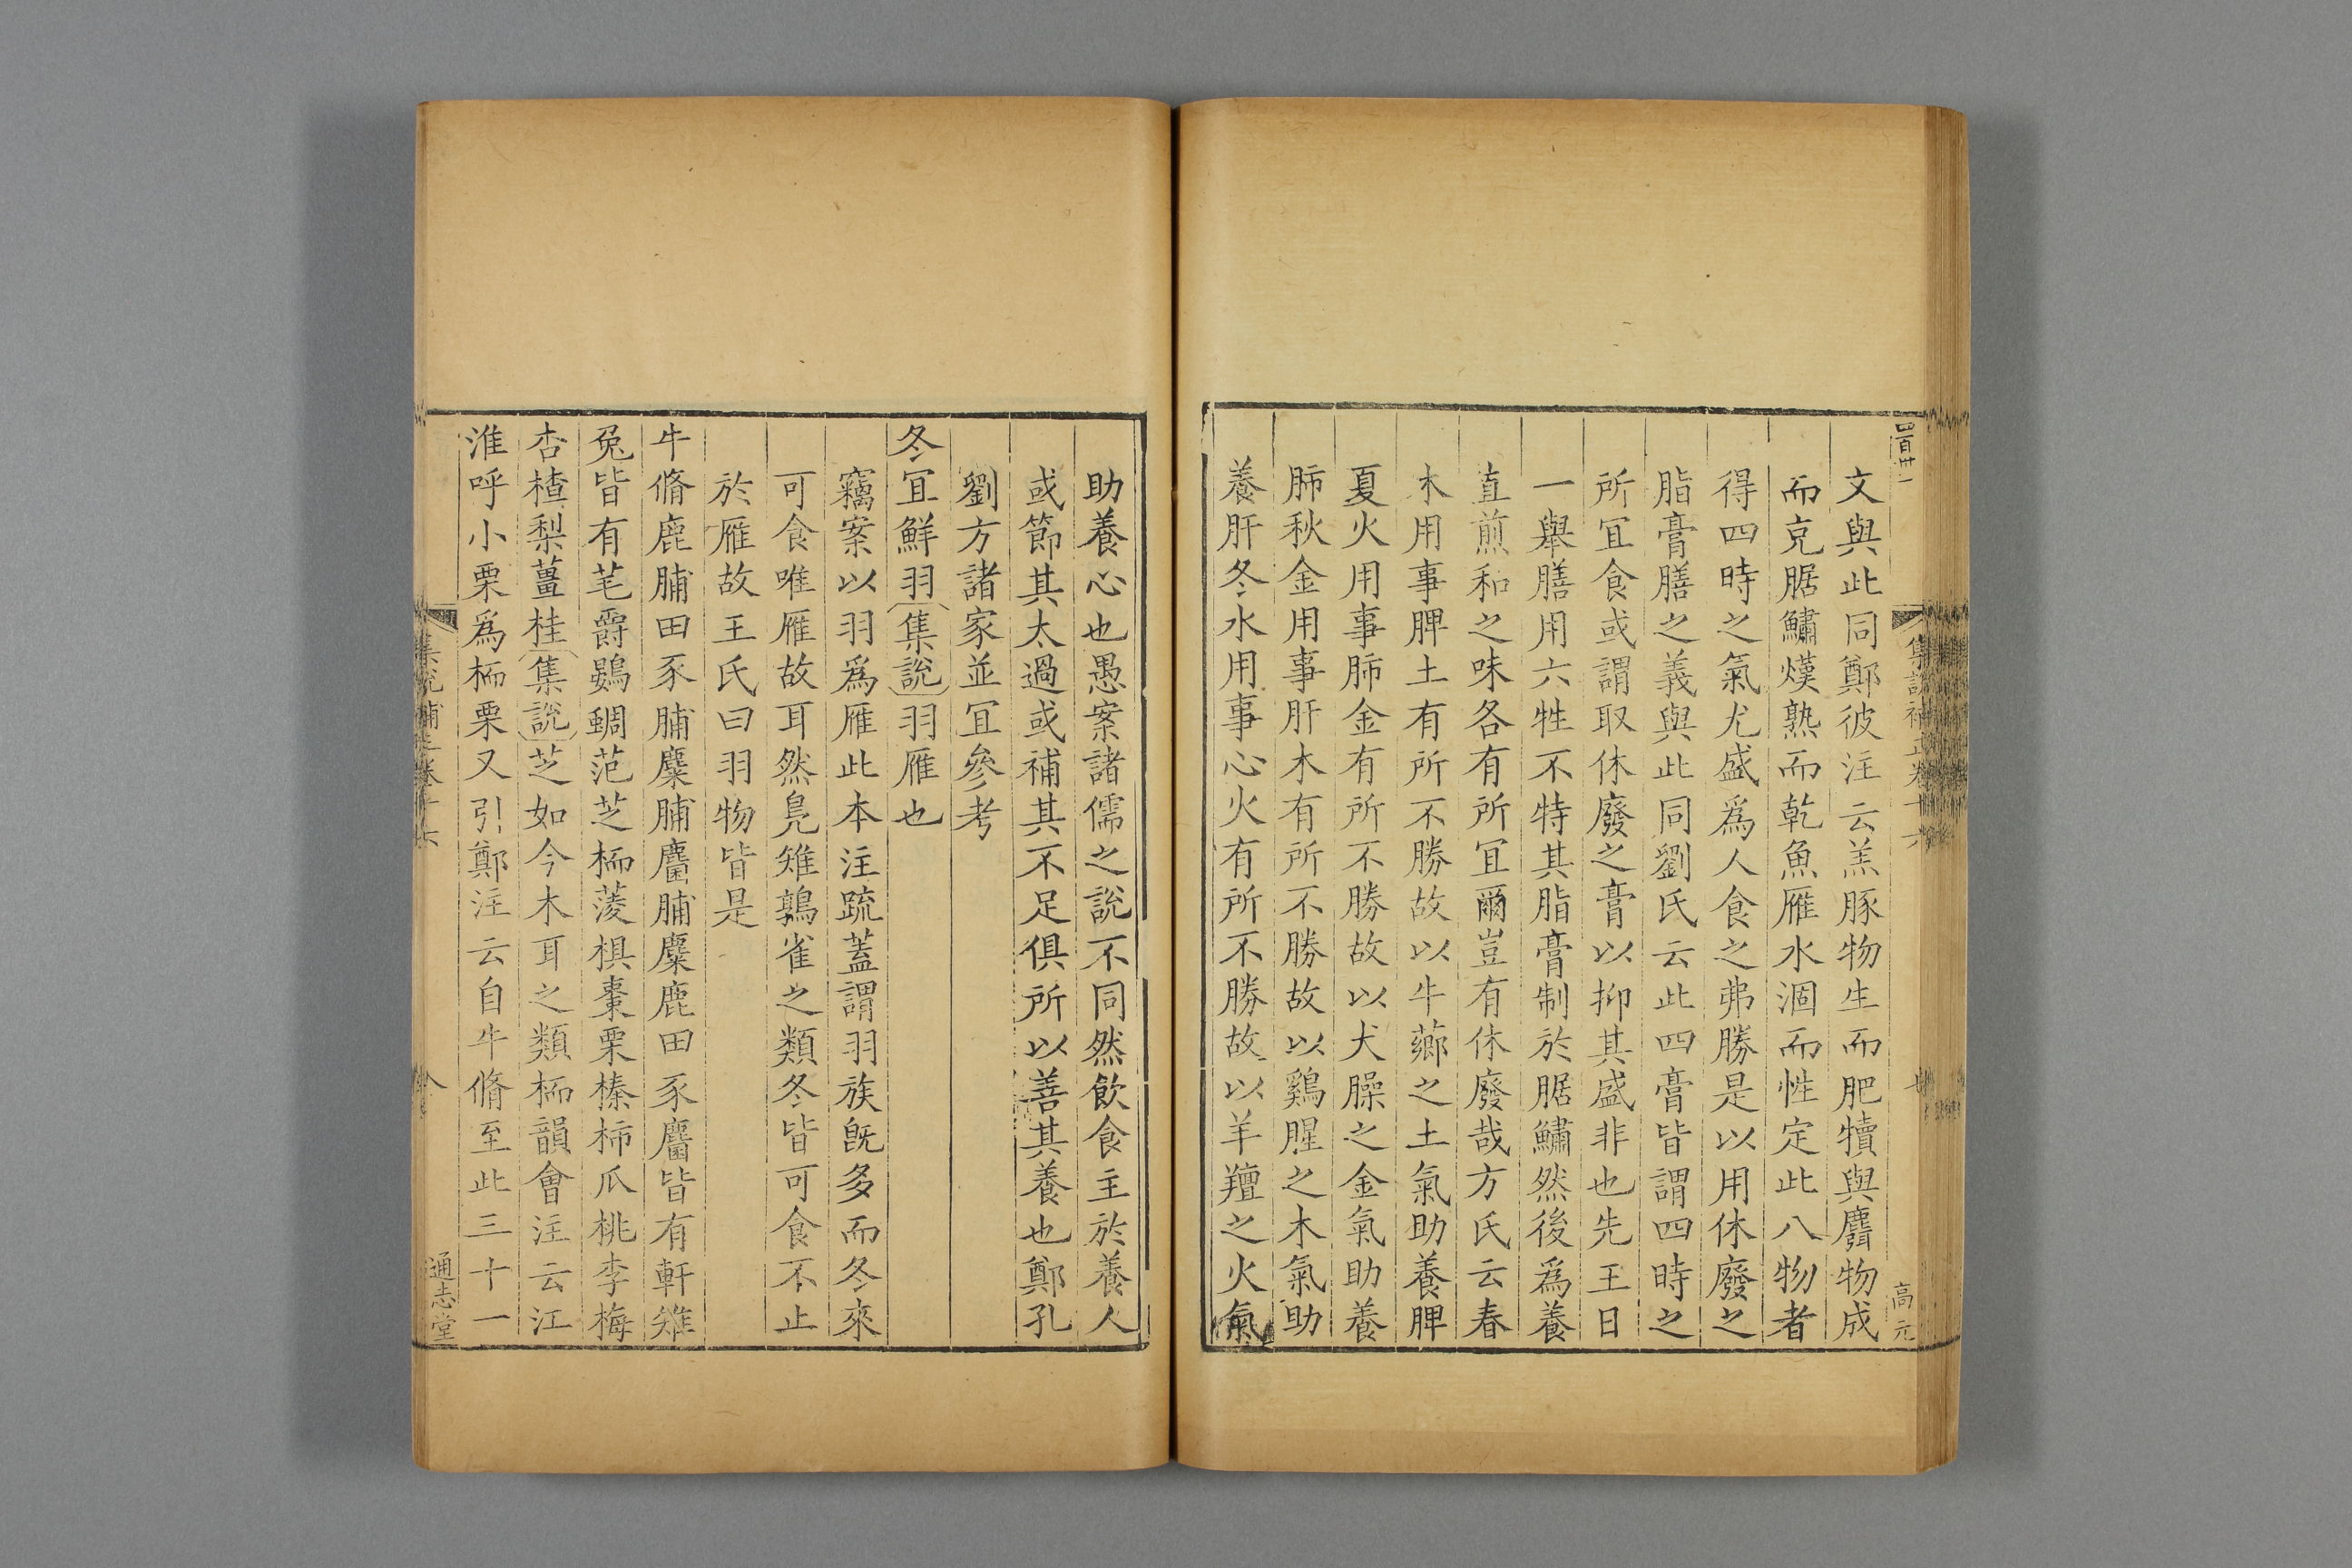 文與此同鄭彼注云羔豚物生而肥犢與麛物成
而克腒鱐熯熟而乾魚雁水涸而性定此八物者
得四時之氣尤盛爲人食之弗勝是以用休廢之
脂膏膳之義與此同劉氏云此四膏皆謂四時之
所宜食或謂取休廢之膏以抑其盛非也先王日
一舉膳用六牲不特其脂膏制於腒鱐然後爲養
直煎和之味各有所宜爾豈有休廢哉方氏云春
木用事脾土有所不勝故以牛薌之土氣助養脾
夏火用事肺金有所不勝故以犬臊之金氣助養
肺秋金用事肝木有所不勝故以鷄腥之木氣助
養肝冬水用事心火有所不勝故以羊羶之火氣
高元
助養心也愚案諸儒之說不同然飲食主於養人
或節其太過或補其不足俱所以善其養也鄭孔
劉方諸家並宜參考
冬宜鮮羽集說羽雁也
竊案以羽爲雁此本注疏蓋謂羽族旣多而冬來
可食唯雁故耳然鳧雉鶉雀之類冬皆可食不止
於雁故王氏曰羽物皆是
牛脩鹿脯田豕脯麋脯麕脯麋鹿田豕麕皆有軒雉
兔皆有芼爵鷃蜩范芝栭蔆椇棗栗榛柿瓜桃李梅
杏楂梨薑桂集說芝如今木耳之類栭韻會注云江
淮呼小栗爲栭栗又引鄭注云自牛脩至此三十一
集說補正卷十六
八
通志堂